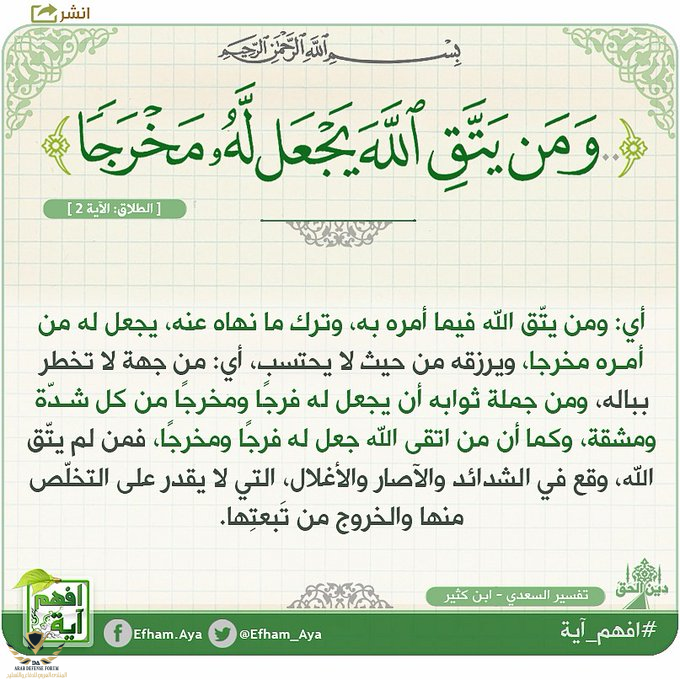 انشر
بِسْمِ اللَّهِ الرَّحْمَٰنِ الرَّحِيمِ
..وَمَن يَتَّقِ ٱللَّهَ يَجْعَل لَّهُۥ مَخْرَجًا
[ الطلاق: الآية 2 ]
أي: ومن يتّق الله فيما أمره به، وترك ما نهاه عنه، يجعل له من
أمره مخرجا، ويرزقه من حيث لا يحتسب، أي: من جهة لا تخطر
بباله، ومن جملة ثوابه أن يجعل له فرجًا ومخرجًا من كل شدّة
ومشقة، وكما أن من اتقى الله جعل له فرجًا ومخرجًا، فمن لم يتّق
الله، وقع في الشدائد والآصار والأغلال، التي لا يقدر على التخلّص
منها والخروج من تَبعتِها.
تفسير السعدي - ابن كثير
دين الحق
#افهم_آية
@Efham_Aya
Efham.Aya
افهم
آية
ARAB DEFENSE FORUM
المنتدى العربي للدفاع والتسليح